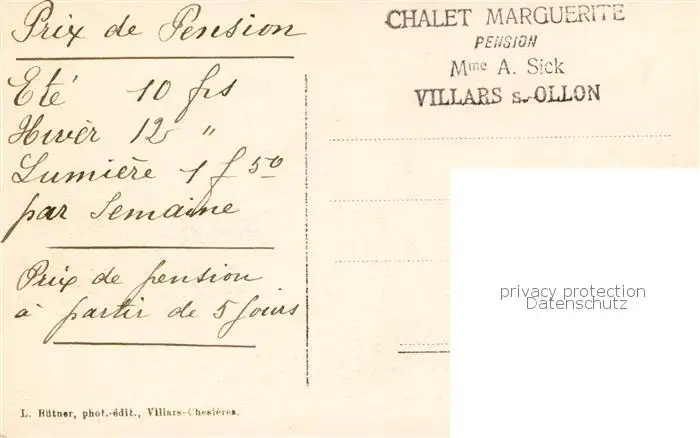 Prix de Pension
Eté 10 frs
Hivèr 12 "
Lumière 1 f 50
par Semaine
Prix de pension
à partir de 5 jours
L. Bütner, phot.-édit., Villars-Chesières.
CHALET MARGUERITE
PENSION
Mme A. Sick
VILLARS s.-OLLON
privacy protection
Datenschutz